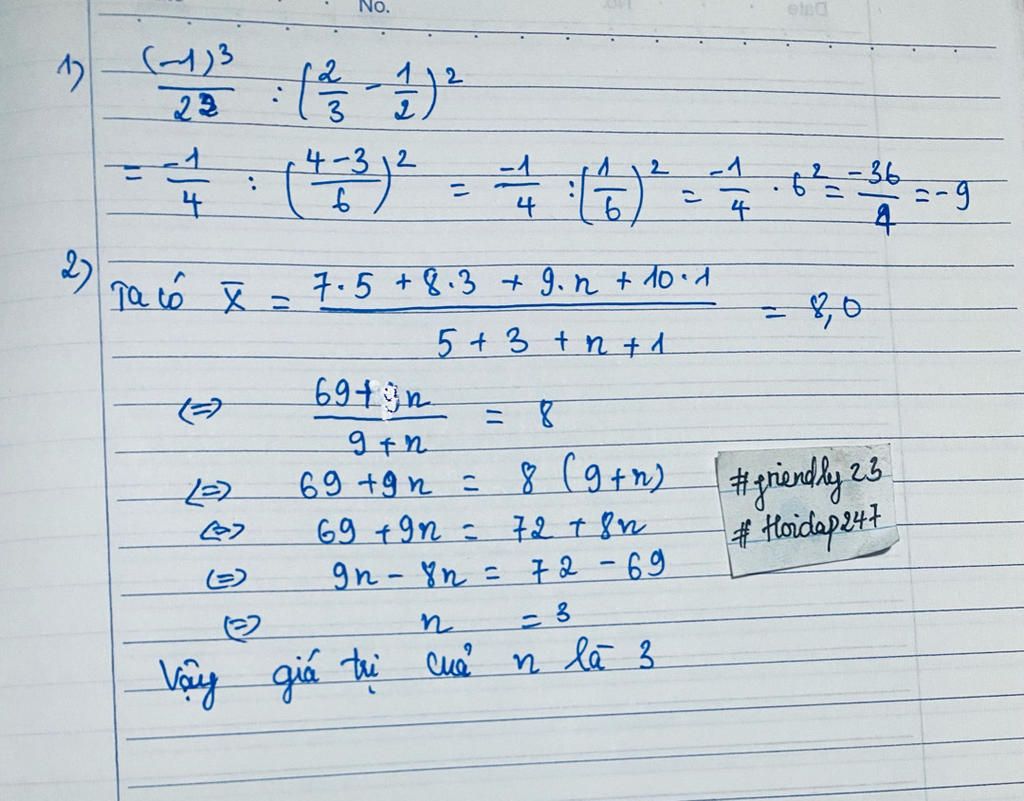 No.
Date
1) (-1)³/2² : (2/3 - 1/2)²
= -1/4 : ((4-3)/6)² = -1/4 : (1/6)² = -1/4 · 6² = -36/4 = -9
2) Ta có X̄ = (7·5 + 8·3 + 9·n + 10·1)/(5 + 3 + n + 1) = 8,0
<=> (69+9n)/(9+n) = 8
<=> 69+9n = 8(9+n)
<=> 69+9n = 72+8n
<=> 9n-8n = 72-69
<=> n = 3
Vậy giá trị của n là 3
#friendly23
#Hoidap247